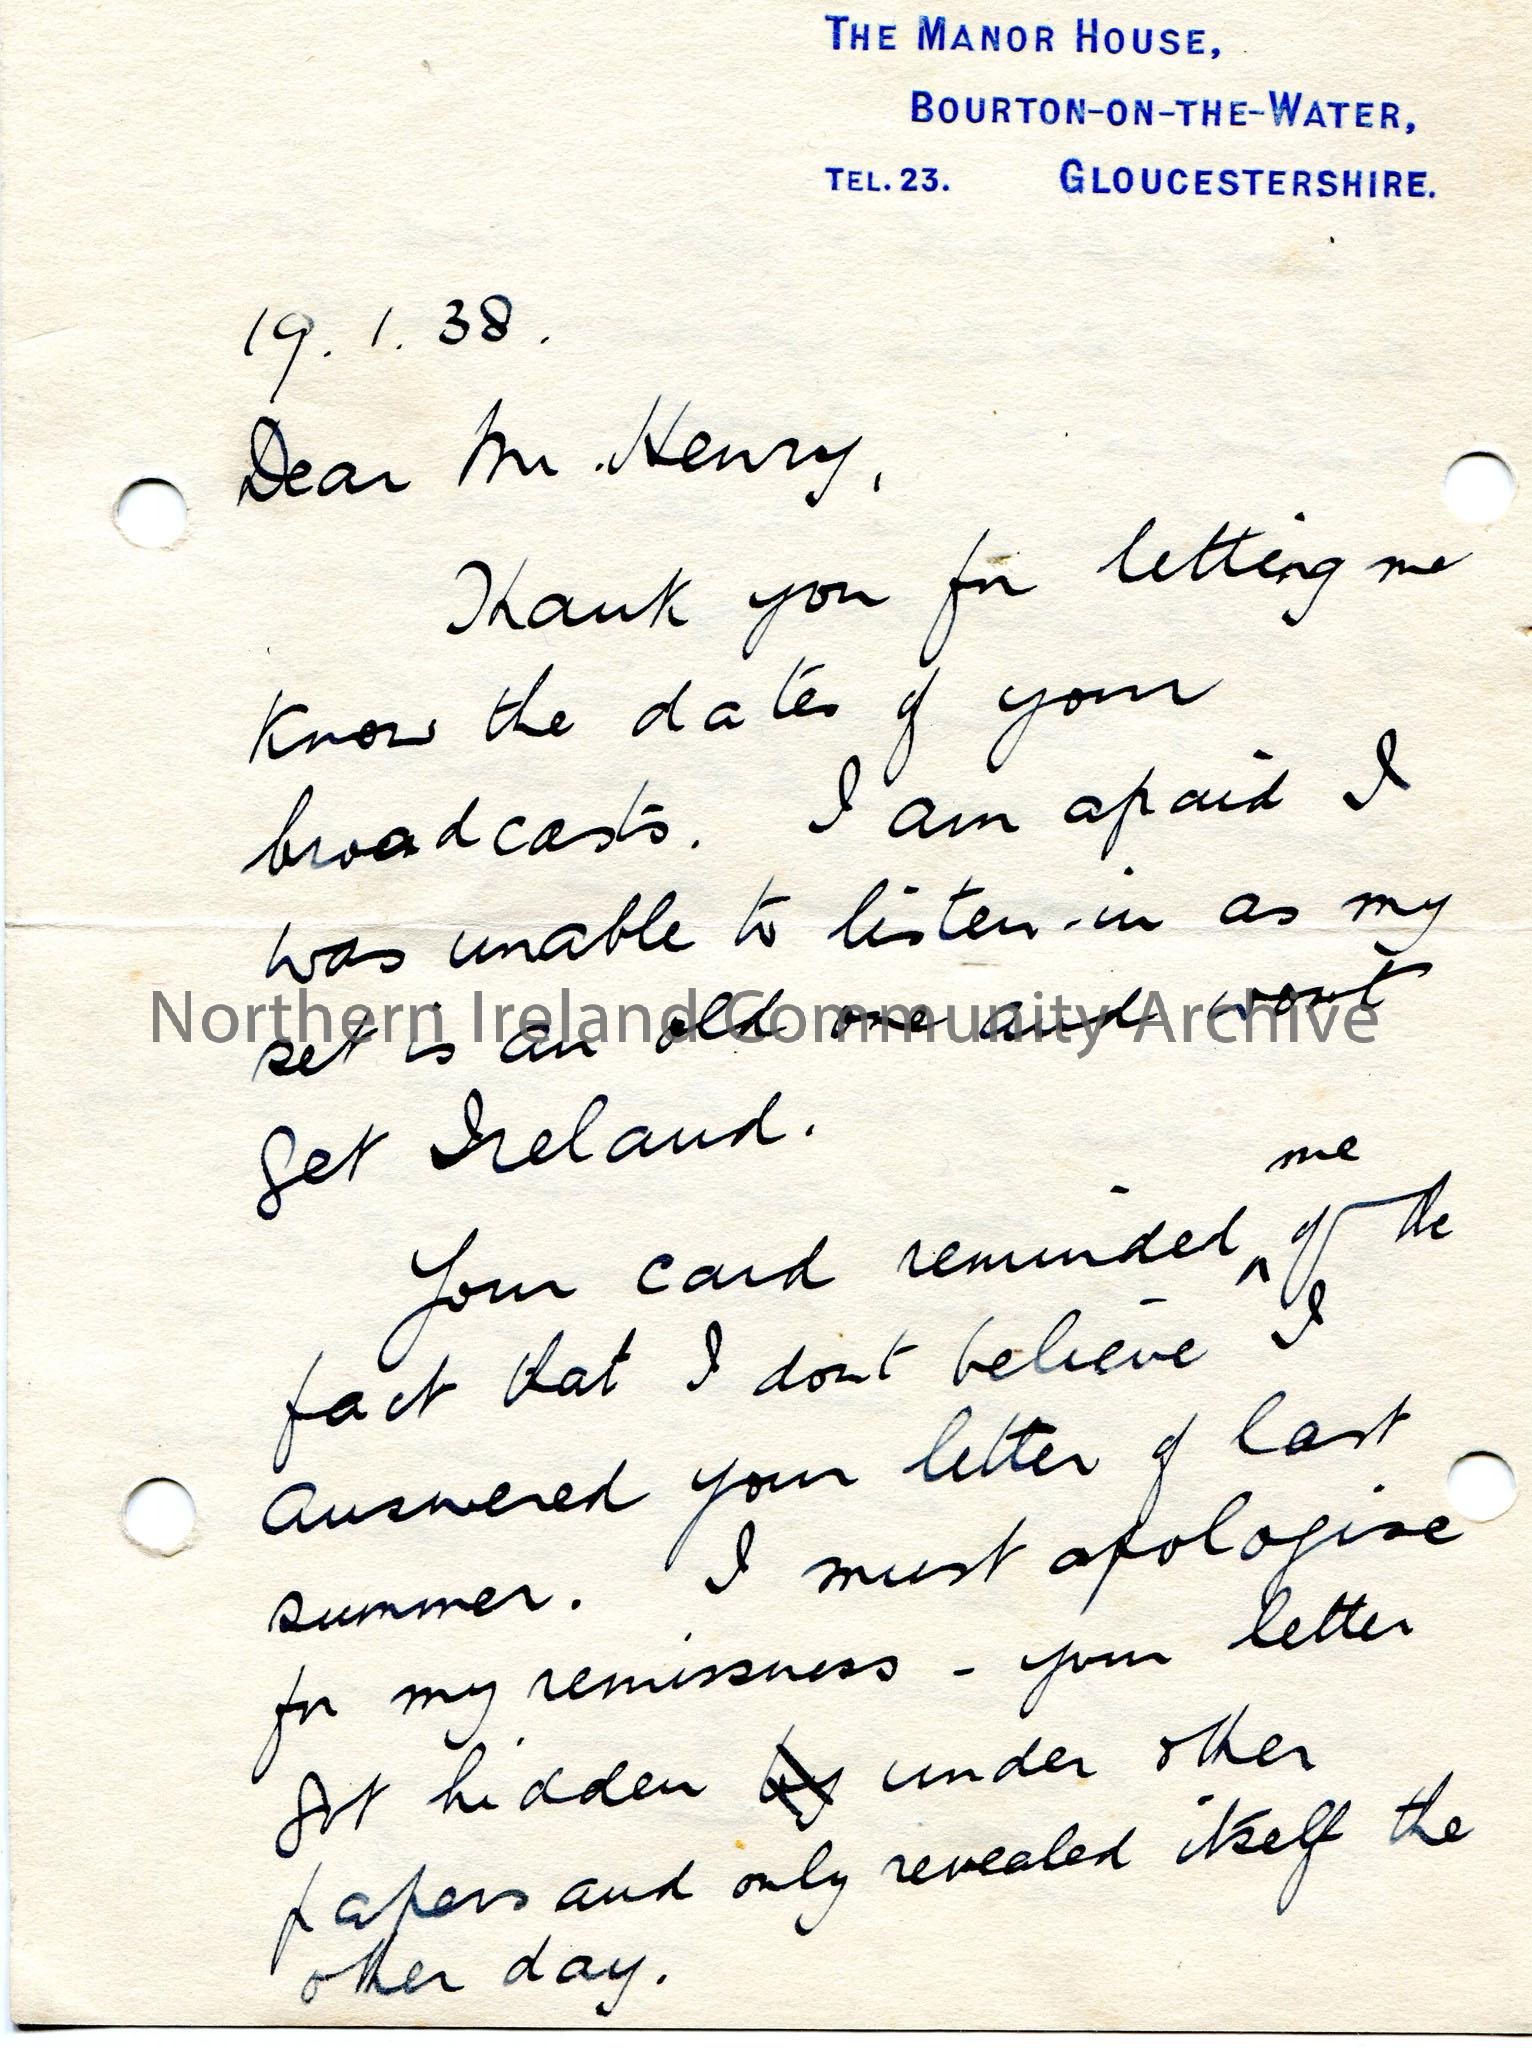 THE MANOR HOUSE,
BOURTON-ON-THE-WATER,
TEL. 23. GLOUCESTERSHIRE.
19. 1. 38.
Dear Mr. Henry,
Thank you for letting me
know the dates of your
broadcasts. I am afraid I
was unable to listen-in as my
Northern Ireland Community Archive
set is an old one and wont
get Ireland.
Your card reminded me of the
fact that I dont believe I
answered your letter of last
summer. I must apologise
for my remissness - your letter
got hidden by under other
papers and only revealed itself the
other day.